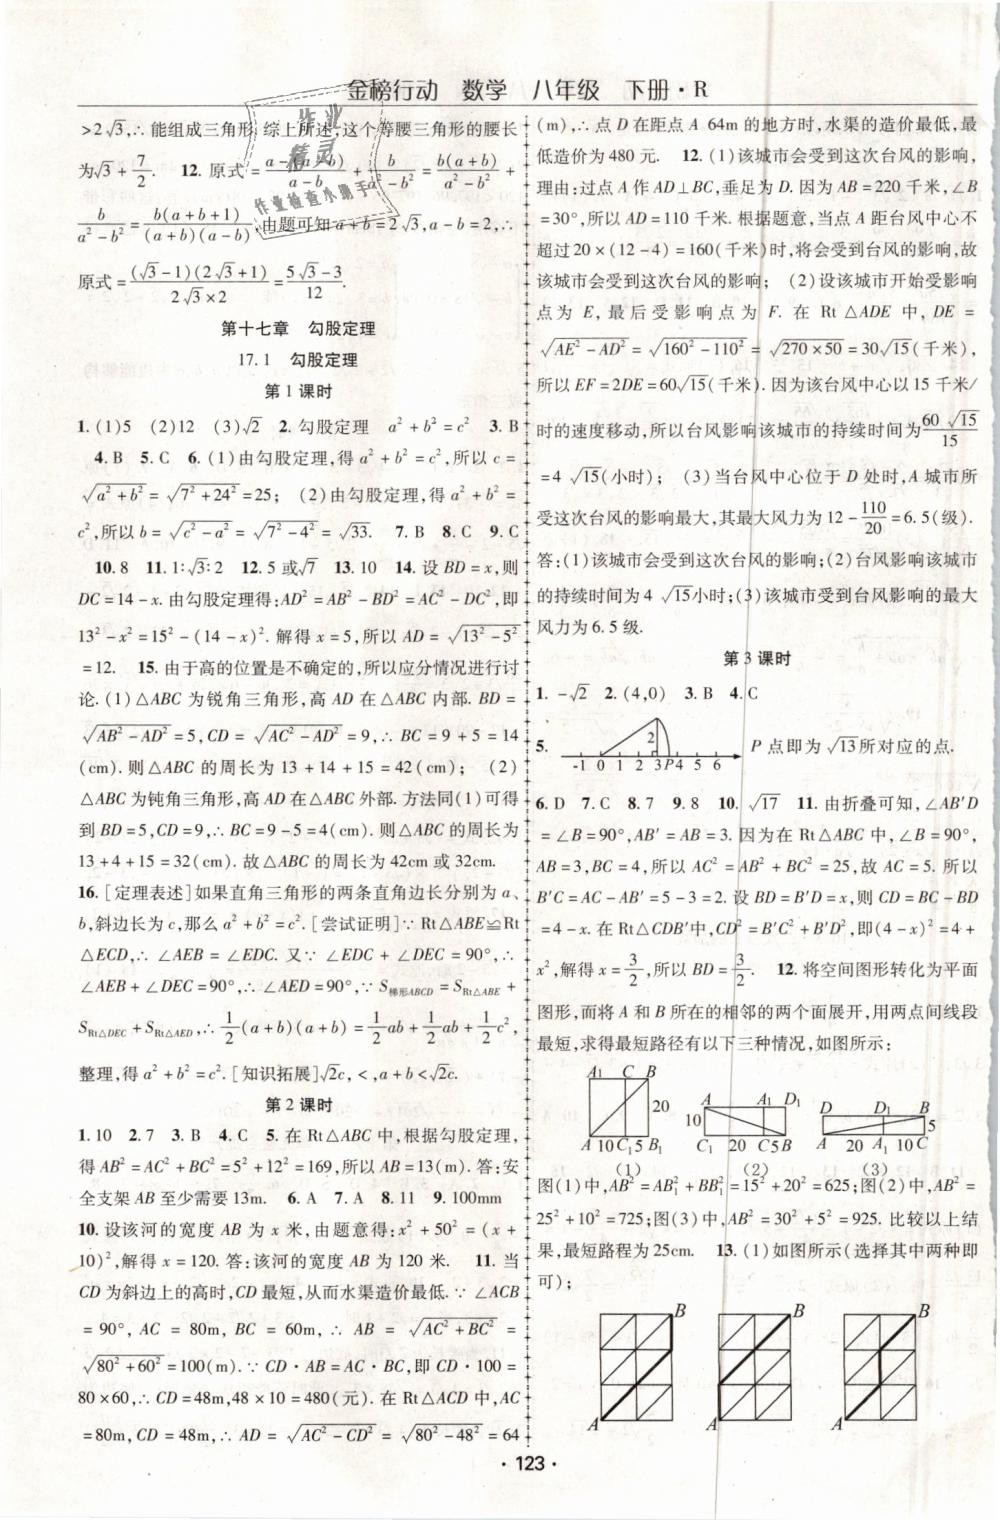 金榜行动 数学 八年级 下册·R
>2√3,∴能组成三角形.综上所述,这个等腰三角形的腰长
为√3+7/2. 12. 原式=a-(a-b)/a-b÷b/a²-b²=b(a+b)/a²-b²+
b/a²-b²=b(a+b+1)/(a+b)(a-b),由题可知a+b=2√3,a-b=2,∴
原式=(√3-1)(2√3+1)/2√3×2=5√3-3/12.
第十七章 勾股定理
17.1 勾股定理
第1课时
1. (1)5 (2)12 (3)√2 2. 勾股定理 a²+b²=c² 3. B
4. B 5. C 6. (1)由勾股定理,得a²+b²=c²,所以c=
√a²+b²=√7²+24²=25; (2)由勾股定理,得a²+b²=
c²,所以b=√c²-a²=√7²-4²=√33. 7. B 8. C 9. C
10. 8 11. 1∶√3∶2 12. 5或√7 13. 10 14. 设BD=x,则
DC=14-x. 由勾股定理得:AD²=AB²-BD²=AC²-DC²,即
13²-x²=15²-(14-x)². 解得x=5,所以AD=√13²-5²
=12. 15. 由于高的位置是不确定的,所以应分情况进行讨
论. (1)△ABC为锐角三角形,高AD在△ABC内部. BD=
√AB²-AD²=5,CD=√AC²-AD²=9,∴BC=9+5=14
(cm). 则△ABC的周长为13+14+15=42(cm); (2)
△ABC为钝角三角形,高AD在△ABC外部. 方法同(1)可得
到BD=5,CD=9,∴BC=9-5=4(cm). 则△ABC的周长为
13+4+15=32(cm). 故△ABC的周长为42cm或32cm.
16. [定理表述]如果直角三角形的两条直角边长分别为a、
b,斜边长为c,那么a²+b²=c². [尝试证明]∵Rt△ABE≌Rt
△ECD,∴∠AEB=∠EDC. 又∵∠EDC+∠DEC=90°,∴
∠AEB+∠DEC=90°,∴∠AED=90°,∵S梯形ABCD=SRt△ABE+
SRt△DEC+SRt△AED,∴1/2(a+b)(a+b)=1/2ab+1/2ab+1/2c²,
整理,得a²+b²=c². [知识拓展]√2c,<,a+b<√2c.
第2课时
1. 10 2. 7 3. B 4. C 5. 在Rt△ABC中,根据勾股定理,
得AB²=AC²+BC²=5²+12²=169,所以AB=13(m). 答:安
全支架AB至少需要13m. 6. A 7. A 8. 11 9. 100mm
10. 设该河的宽度AB为x米,由题意得:x²+50²=(x+
10)²,解得x=120. 答:该河的宽度AB为120米. 11. 当
CD为斜边上的高时,CD最短,从而水渠造价最低. ∵∠ACB
=90°,AC=80m,BC=60m,∴AB=√AC²+BC²=
√80²+60²=100(m). ∵CD·AB=AC·BC,即CD·100=
80×60,∴CD=48m,48×10=480(元). 在Rt△ACD中,AC
=80m,CD=48m,∴AD=√AC²-CD²=√80²-48²=64
(m),∴点D在距点A 64m的地方时,水渠的造价最低,最
低造价为480元. 12. (1)该城市会受到这次台风的影响,
理由:过点A作AD⊥BC,垂足为D. 因为AB=220千米,∠B
=30°,所以AD=110千米. 根据题意,当点A距台风中心不
超过20×(12-4)=160(千米)时,将会受到台风的影响,故
该城市会受到这次台风的影响; (2)设该城市开始受影响
点为E,最后受影响点为F. 在Rt△ADE中,DE=
√AE²-AD²=√160²-110²=√270×50=30√15(千米),
所以EF=2DE=60√15(千米). 因为该台风中心以15千米/
时的速度移动,所以台风影响该城市的持续时间为60√15/15
=4√15(小时); (3)当台风中心位于D处时,A城市所
受这次台风的影响最大,其最大风力为12-110/20=6.5(级).
答:(1)该城市会受到这次台风的影响;(2)台风影响该城市
的持续时间为4√15小时;(3)该城市受到台风影响的最大
风力为6.5级.
第3课时
1. -√2 2. (4,0) 3. B 4. C
5. 2 -1 0 1 2 3 P 4 5 6 P点即为√13所对应的点.
6. D 7. C 8. 7 9. 8 10. √17 11. 由折叠可知,∠AB'D
=∠B=90°,AB'=AB=3. 因为在Rt△ABC中,∠B=90°,
AB=3,BC=4,所以AC²=AB²+BC²=25,故AC=5. 所以
B'C=AC-AB'=5-3=2. 设BD=B'D=x,则CD=BC-BD
=4-x. 在Rt△CDB'中,CD²=B'C²+B'D²,即(4-x)²=4+
x²,解得x=3/2,所以BD=3/2. 12. 将空间图形转化为平面
图形,而将A和B所在的相邻的两个面展开,用两点间线段
最短,求得最短路径有以下三种情况,如图所示:
A₁ C B 20 A 10 C₁ 5 B₁
A A₁ D₁ 10 C₁ 20 C 5 B
D D₁ B 5 A 20 A₁ 10 C
(1) (2) (3)
图(1)中,AB²=AB₁²+BB₁²=15²+20²=625;图(2)中,AB²=
25²+10²=725;图(3)中,AB²=30²+5²=925. 比较以上结
果,最短路程为25cm. 13. (1)如图所示(选择其中两种即
可);
B B B
A A A
·123·
作业
精灵
作业检查小助手